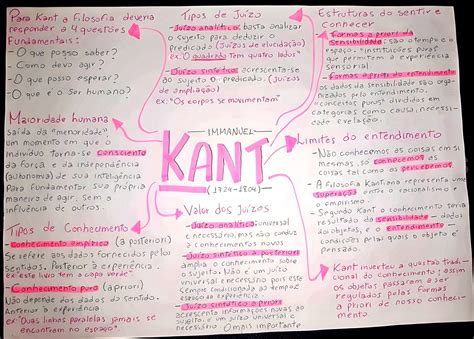 Para Kant a Filosofia deveria
responder a 4 questões
Fundamentais:
- O que posso saber?
- Como devo agir?
- O que posso esperar?
- O que é o Ser humano?
Tipos de Juízo
- Juízo analítico: basta analizar
o sujeito para deduzir o
predicado (Juízos de elucidação)
ex: "O quadrado tem quatro lados"
- Juízo sintético: acrescenta-se
ao sujeito o predicado. (Juízos
de ampliação)
ex: "Os corpos se movimentam"
Estruturas do sentir e
Conhecer
- Formas a priori da
sensibilidade: são o tempo e o
espaço - "instituições puras"
que permitem a experiência
sensorial
- Formas a priori do entendimento:
os dados da sensibilidade são organizados
pelo entendimento.
"conceitos puros" divididos em
categorias como causa, necessidade,
relação.
Maioridade humana
saída da "menoridade",
um momento em que o
indivíduo torna-se consciente
da força e da independência
(autonomia) de sua inteligência
Para fundamentar sua própria
maneira de agir. Sem a
influência de outros.
IMMANUEL
KANT
(1724-1804)
Limites do entendimento
- Não conhecemos as coisas em si
mesmas, só conhecemos as
coisas tal como as percebemos
- A Filosofia Kantiana representa uma
superação entre o racionalismo e o
empirismo.
- Segundo Kant o conhecimento seria
resultado da sensibilidade - dados
do objeto, e o entendimento -
condições pelas quais o objeto é
pensado.
Tipos de Conhecimento
- Conhecimento empírico (a posteriori)
Se refere aos dados fornecidos pelos
sentidos. Posterior à experiência.
ex: "este livro tem a capa verde".
- Conhecimento puro (a priori)
Não depende dos dados do sentido.
Anterior à experiência
ex: "Duas linhas paralelas jamais se
encontram no espaço".
Valor dos Juízos
- Juízo analítico: universal
e necessário, mas não conduz
a conhecimentos novos
- Juízo sintético a posteriori
amplia o conhecimento sobre
o sujeito. Não é um juízo
universal e necessário pois está
sempre condicionado ao tempo e
espaço da experiência.
- Juízo sintético a priori
acrescenta informações novas ao
sujeito, de modo universal e
necessário. O mais importante
Kant inverteu a questão tradicional
do conhecimento: assim
os objetos passaram a ser
regulados pelas formas
a priori de nosso conhecimento